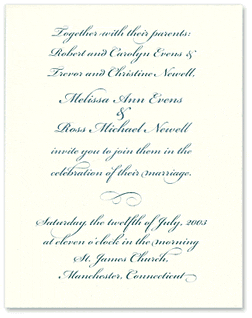 Together with their parents:
Robert and Carolyn Evens &
Trevor and Christine Newell,
Melissa Ann Evens
&
Ross Michael Newell
invite you to join them in the
celebration of their marriage.
Saturday, the twelfth of July, 2003
at eleven o'clock in the morning
St. James Church,
Manchester, Connecticut